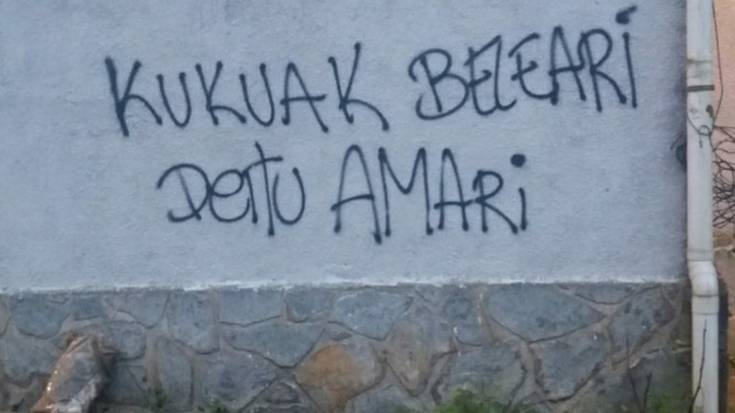 KUKUAK BELEARI
DEITU AMARI